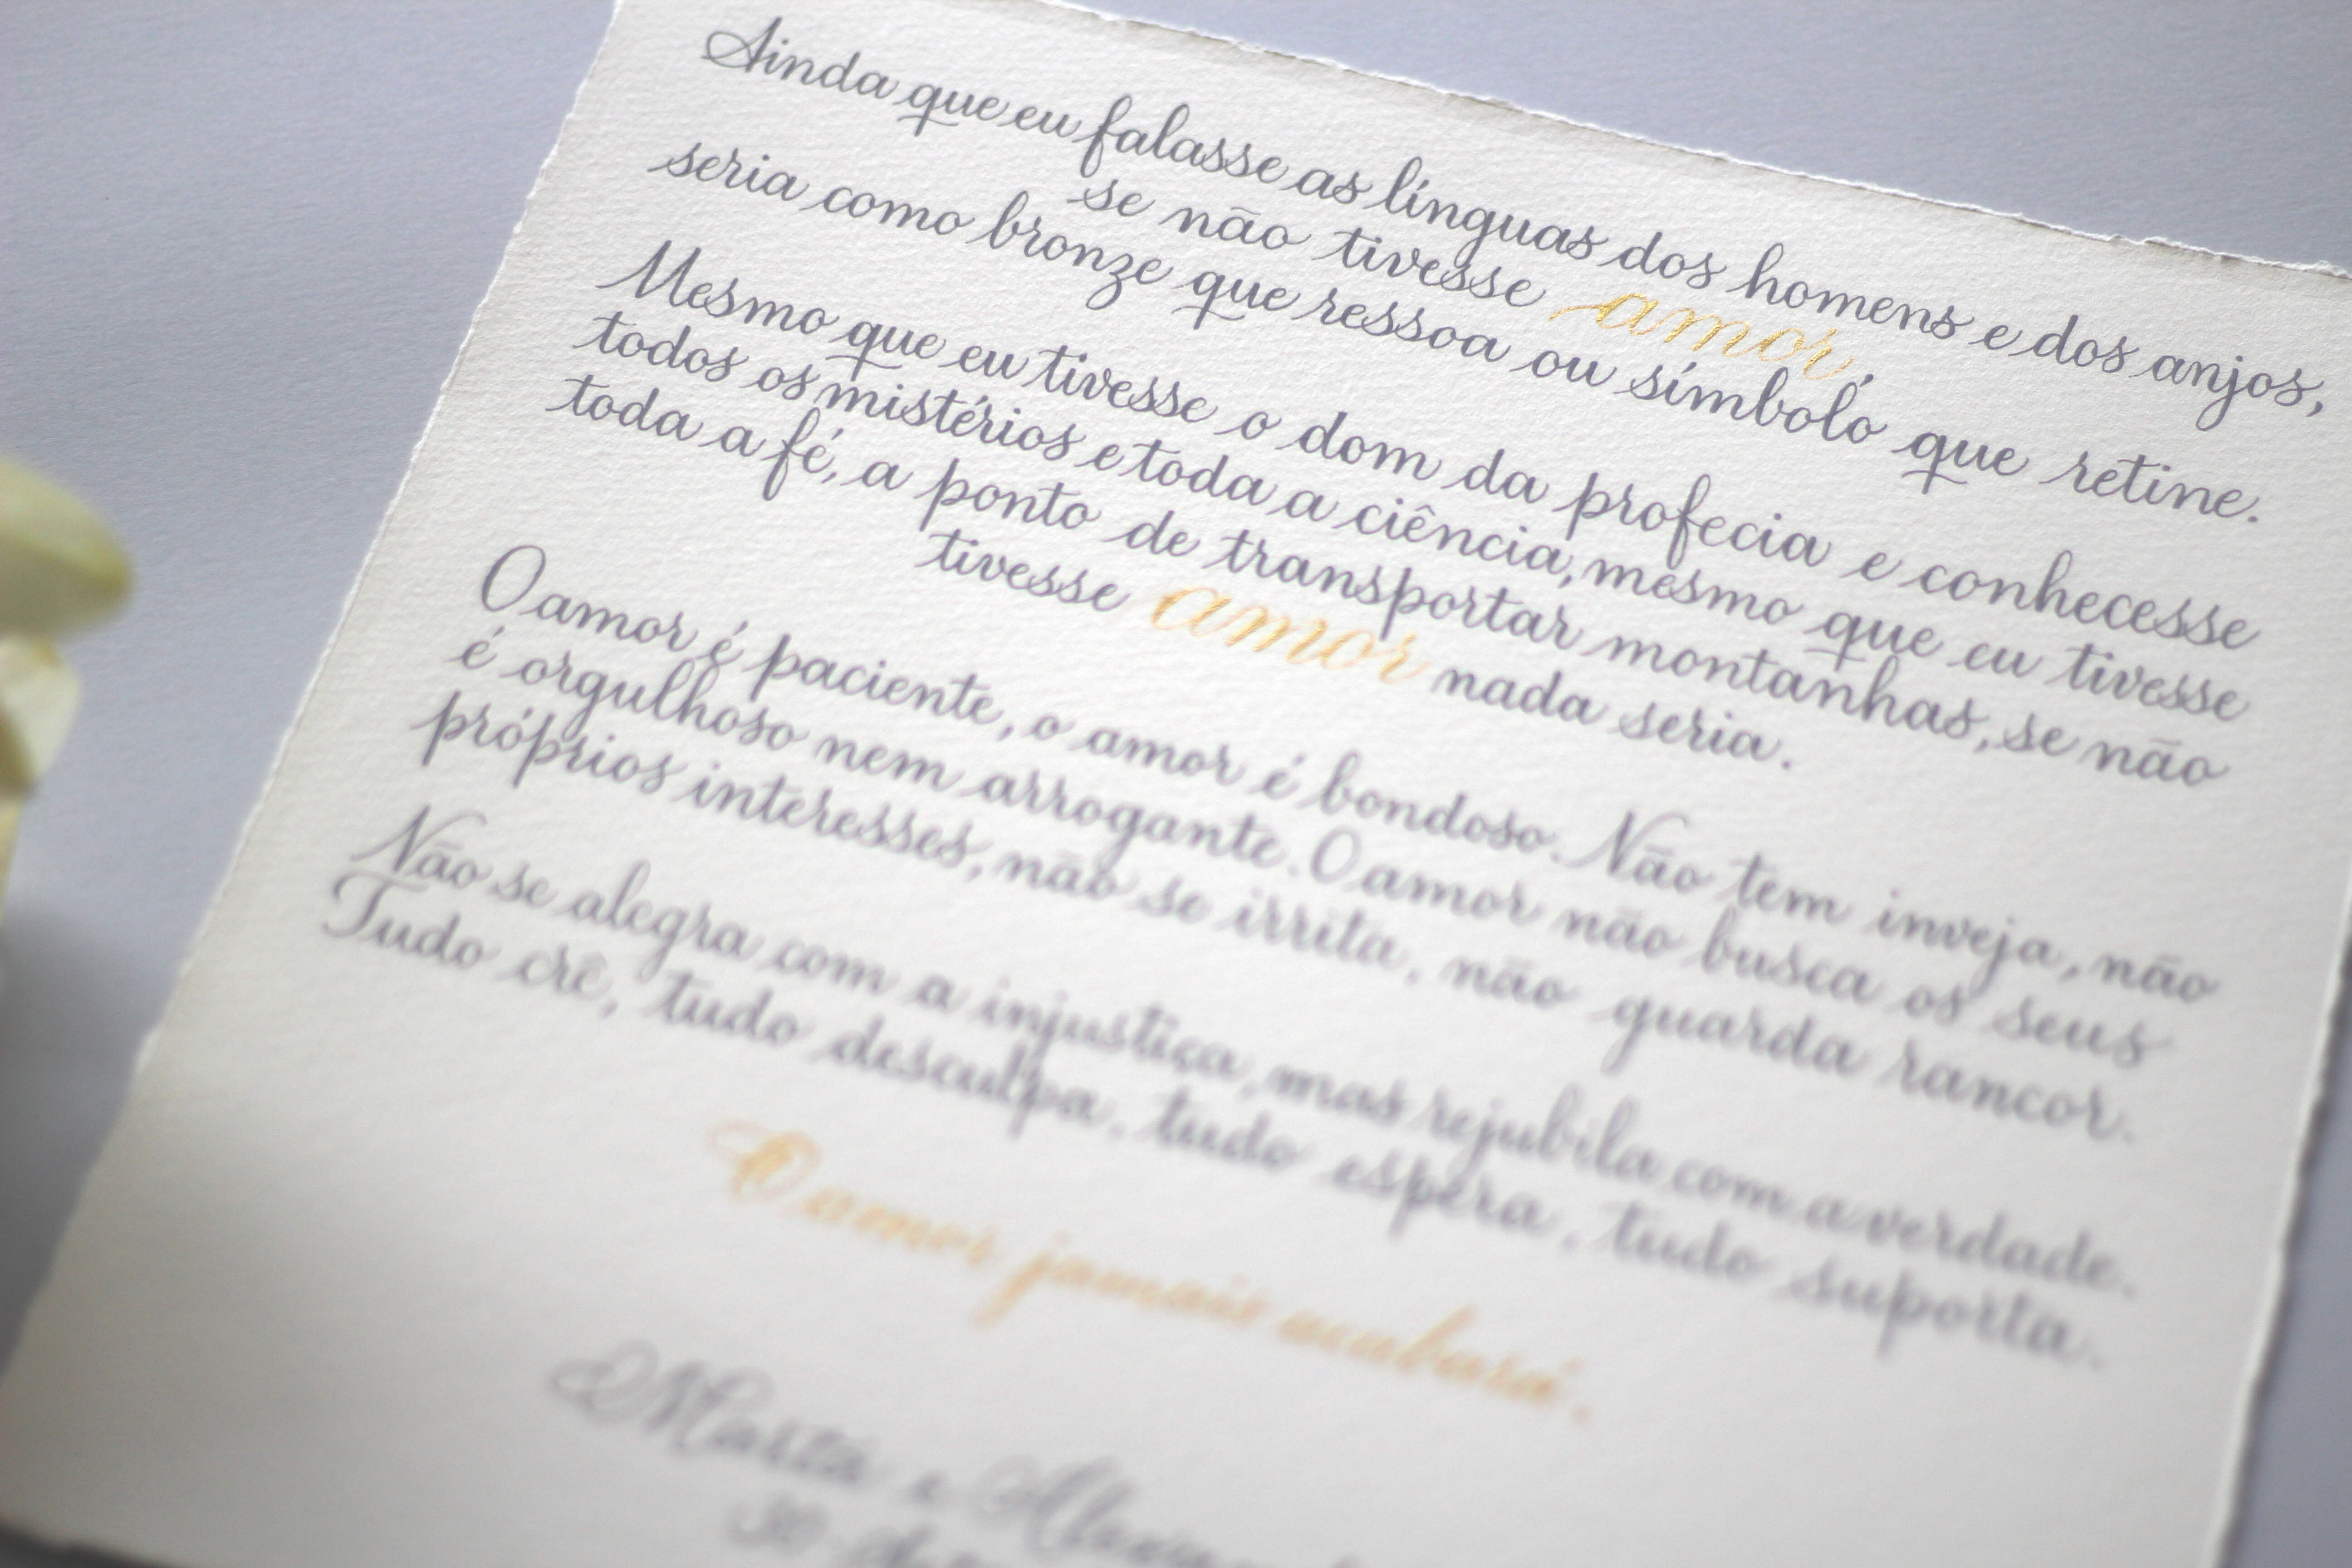 Ainda que eu falasse as línguas dos homens e dos anjos,
se não tivesse amor,
seria como bronze que ressoa ou símbolo que retine.
Mesmo que eu tivesse o dom da profecia e conhecesse
todos os mistérios e toda a ciência, mesmo que eu tivesse
toda a fé, a ponto de transportar montanhas, se não
tivesse amor nada seria.
O amor é paciente, o amor é bondoso. Não tem inveja, não
é orgulhoso nem arrogante. O amor não busca os seus
próprios interesses, não se irrita, não guarda rancor.
Não se alegra com a injustiça, mas rejubila com a verdade.
Tudo crê, tudo desculpa, tudo espera, tudo suporta.
O amor jamais acabará.
Marta e
30 de